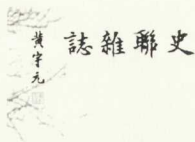 史聯雜誌
黄宇元